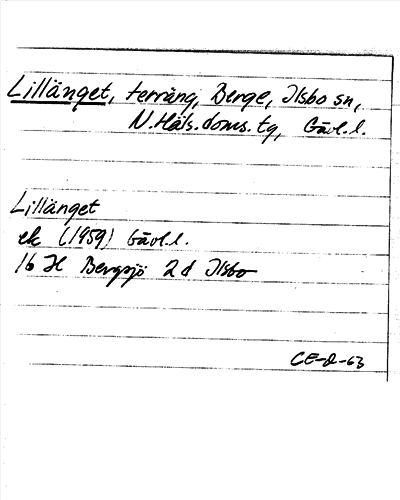 Lillänget, terräng, Berge, Ilsbo sn,
N.Häls.doms.tg, Gävl.l.
Lillänget
ek (1959) Gävl.l.
16 H Bergsjö 2d Ilsbo
CE-D-63